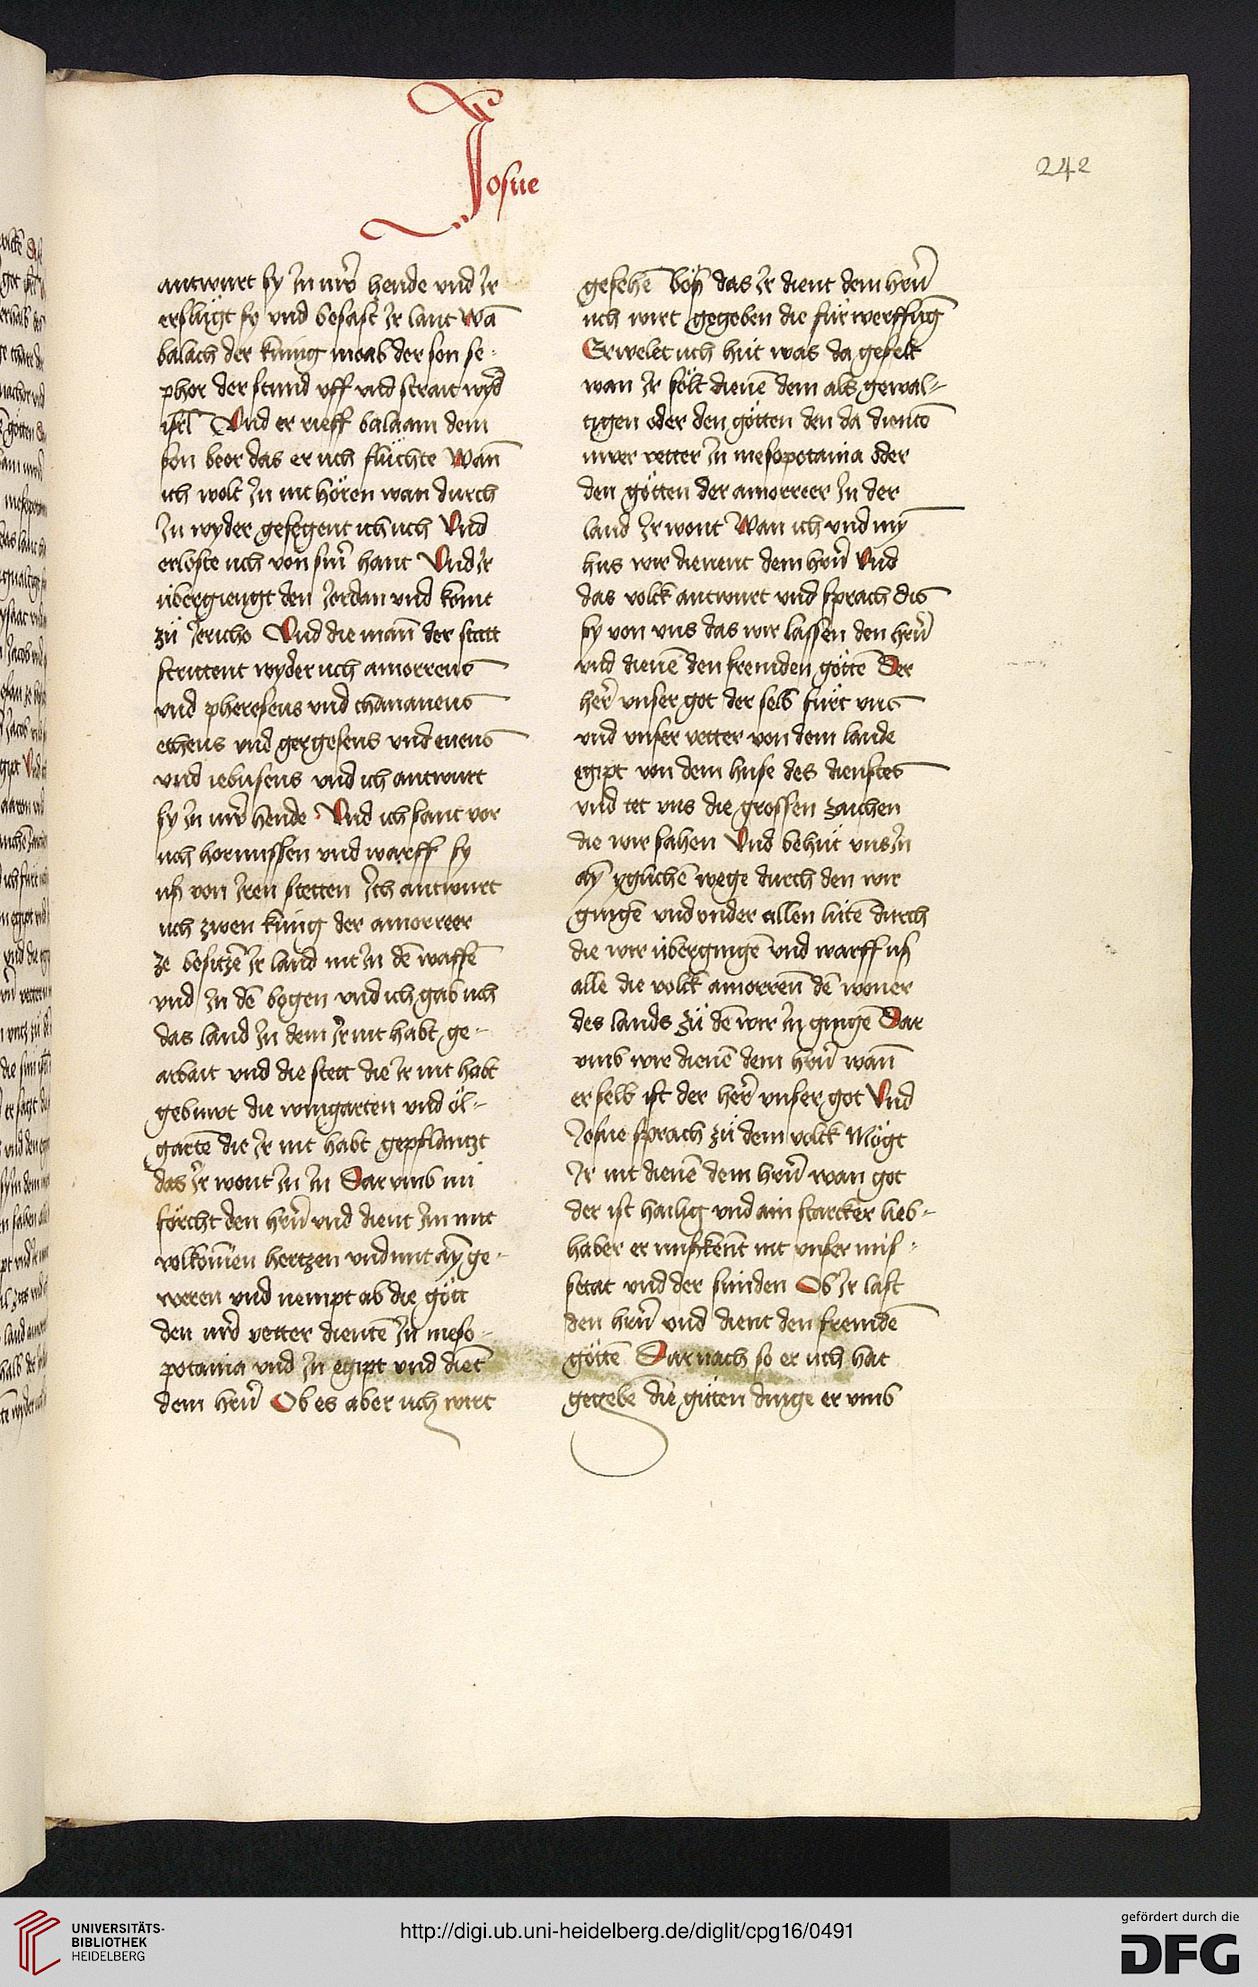 Josue
242
antwurt sy In uwr̄ hende vnd Ir
erslügt sy vnd besast Ir lant Wā
balach der kunig moab der son se-
phor der stund vff vnd strait wyd̄
isrl̄ Vnd er rieff balaam dem
son beor das er uch flüchte Wan̄
ich wolt In nit hören wan durch
In wyder gesegent ich uch Vnd
erloste uch von sinr̄ hant Vnd Ir
übergiengt den Jordan vnd kamt
zü Jericho Vnd die man̄ der statt
strittent wyder uch amorreus
vnd pheresens vnd chananeus
etheus vnd gergesens vnd eueus
vnd iebusens vnd ich antwurt
sy In uwr̄ hende Vnd ich sant vor
uch hornussen vnd warff sy
uß von Iren stetten Ich antwurt
uch zwen kunig der amorreer
ze besitzē Ir land nit In dē waffē
vnd In dē bogen vnd ich gab uch
das land In dem Ir nit habt ge-
arbait vnd die stett die Ir nit habt
gebuwt die wingarten vnd öl-
gartē die Ir nit habt gepflantzt
das Ir wont In In Dar vmb nu
förcht den hrn̄ vnd dient Im mit
volkom̄en hertzen vnd mit aȳ ge-
weren vnd nempt ab die gött
den uwr̄ vetter dientē In meso-
potania vnd In egipt vnd diēt
dem hrn̄ Ob es aber uch wirt
gesehē böß das Ir dient dem hrn̄
uch wirt gegeben die für werffūg
Erwelet uch hüt was da gefelt
wan Ir sölt dienē dem als gewal-
tigen oder den götten den da dientē
uwer vetter In mesopotania oder
den götten der amorreer In der
land Ir wont Wan ich vnd mȳ
hus wir dienent dem hrn̄ Vnd
das volck antwurt vnd sprach dis
sy von vns das wir lassen den hrn̄
vnd dienē den fremden göttē Der
her̄ vnser got der selb fürt vns
vnd vnser vetter von dem lande
egipt von dem huse des dienstes
vnd tet vns die grossen zaichen
die wir sahen Vnd behüt vns In
aȳ yglichē wege durch den wir
gingē vnd vnder allen lütē durch
die wir übergingē vnd warff uß
alle die volck amorreū dē woner
des lands zü dē wir In gingē Dar
vmb wir dienē dem hrn̄ wan̄
er selb ist der her̄ vnser got Vnd
Josue sprach zü dem volck Mögt
Ir nit dienē dem hrn̄ wan got
der ist hailig vnd ain starcker lieb-
haber er nußkent nit vnser mis-
setat vnd der sunden Ob Ir last
den hrn̄ vnd dient den fremdē
göttē Dar nach so er uch hat
gegebē die güten dinge er vmb
UNIVERSITÄTS-
BIBLIOTHEK
HEIDELBERG
http://digi.ub.uni-heidelberg.de/diglit/cpg16/0491
gefördert durch die
DFG